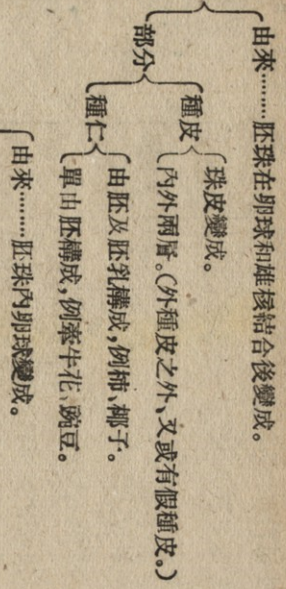 由來………胚珠在卵球和雄核結合後變成。
部分
種皮
珠皮變成。
內外兩層。(外種皮之外、又或有假種皮。)
種仁
由胚及胚乳構成,例柿、椰子。
單由胚構成,例牽牛花、豌豆。
由來………胚珠內卵球變成。